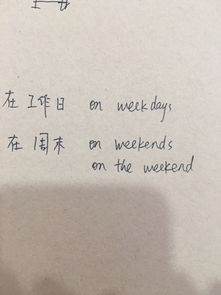 在工作日 on weekdays
在周末 on weekends
on the weekend